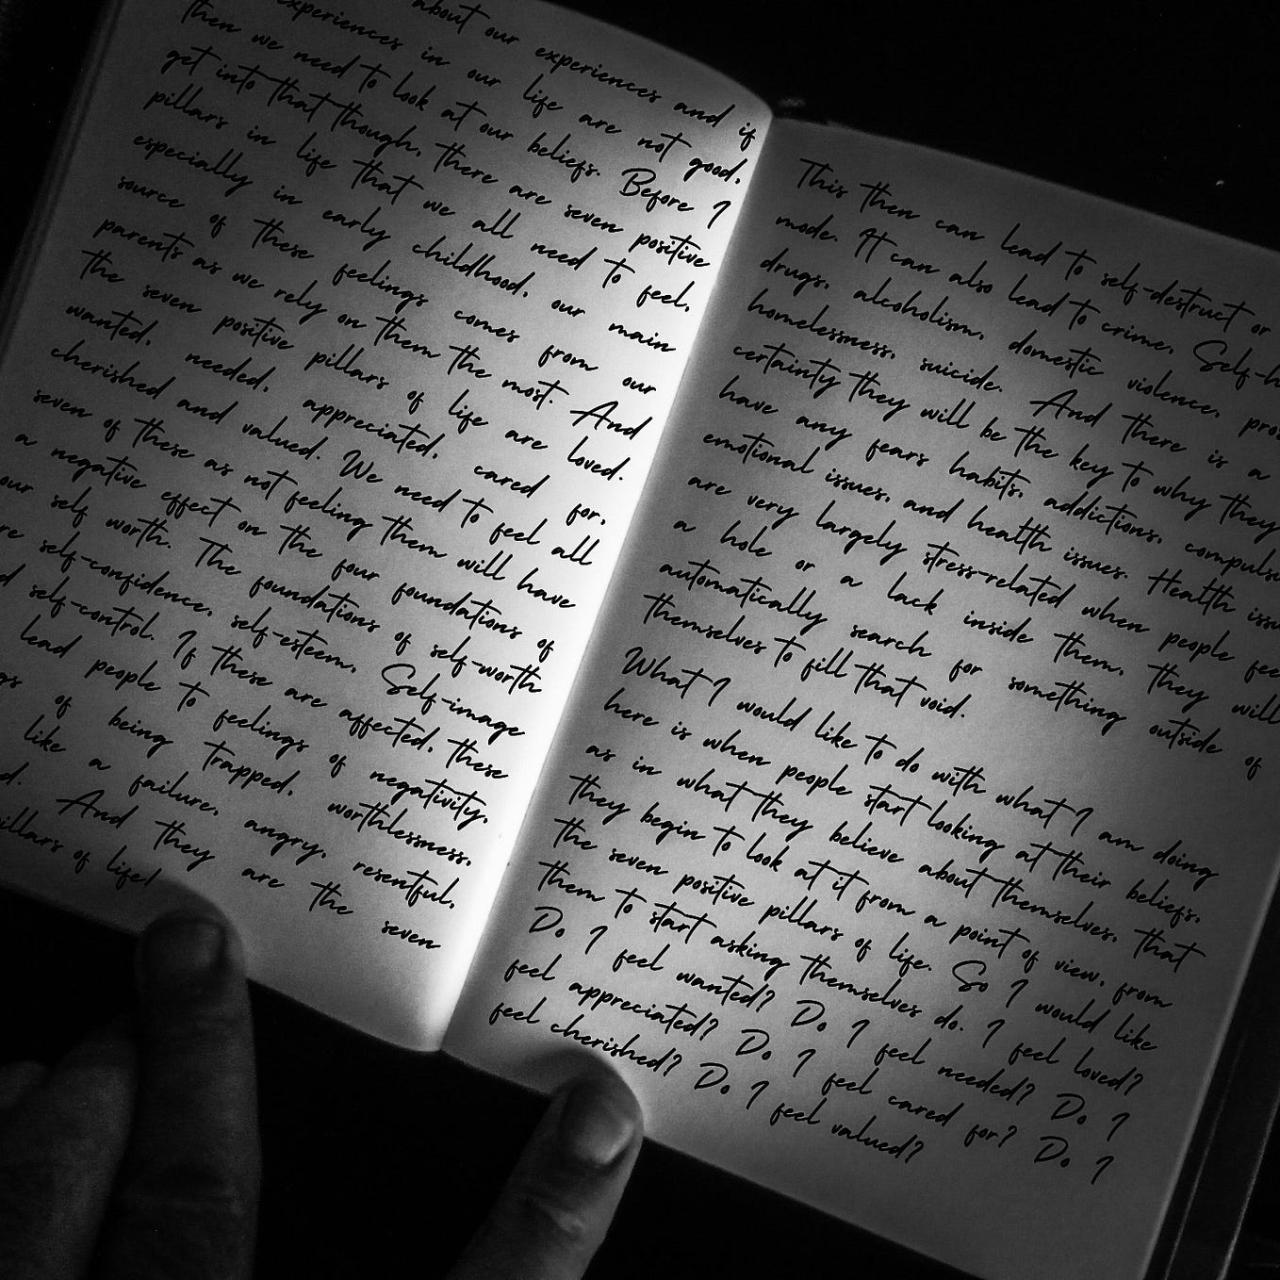 about our experiences and if
experiences in our life are not good,
then we need to look at our beliefs. Before I
get into that though, there are seven positive
pillars in life that we all need to feel,
especially in early childhood, our main
source of these feelings comes from our
parents as we rely on them the most. And
the seven positive pillars of life are loved.
wanted, needed, appreciated, cared for,
cherished and valued. We need to feel all
seven of these as not feeling them will have
a negative effect on the four foundations of
our self worth. The foundations of self-worth
self-confidence, self-esteem, Self-image
self-control. If these are affected, these
lead people to feelings of negativity,
of being trapped, worthlessness,
like a failure, angry, resentful,
And they are the seven
pillars of life!
This then can lead to self-destruct or
mode. It can also lead to crime, Self-h
drugs, alcoholism, domestic violence, pros
homelessness, suicide. And there is a
certainty they will be the key to why they
have any fears habits, addictions, compulsi
emotional issues, and health issues. Health issu
are very largely stress-related when people fee
a hole or a lack inside them, they will
automatically search for something outside of
themselves to fill that void.
What I would like to do with what I am doing
here is when people start looking at their beliefs,
as in what they believe about themselves, that
they begin to look at it from a point of view, from
the seven positive pillars of life. So I would like
them to start asking themselves do. I feel loved?
Do I feel wanted? Do I feel needed? Do I
feel appreciated? Do I feel cared for? Do I
feel cherished? Do I feel valued?